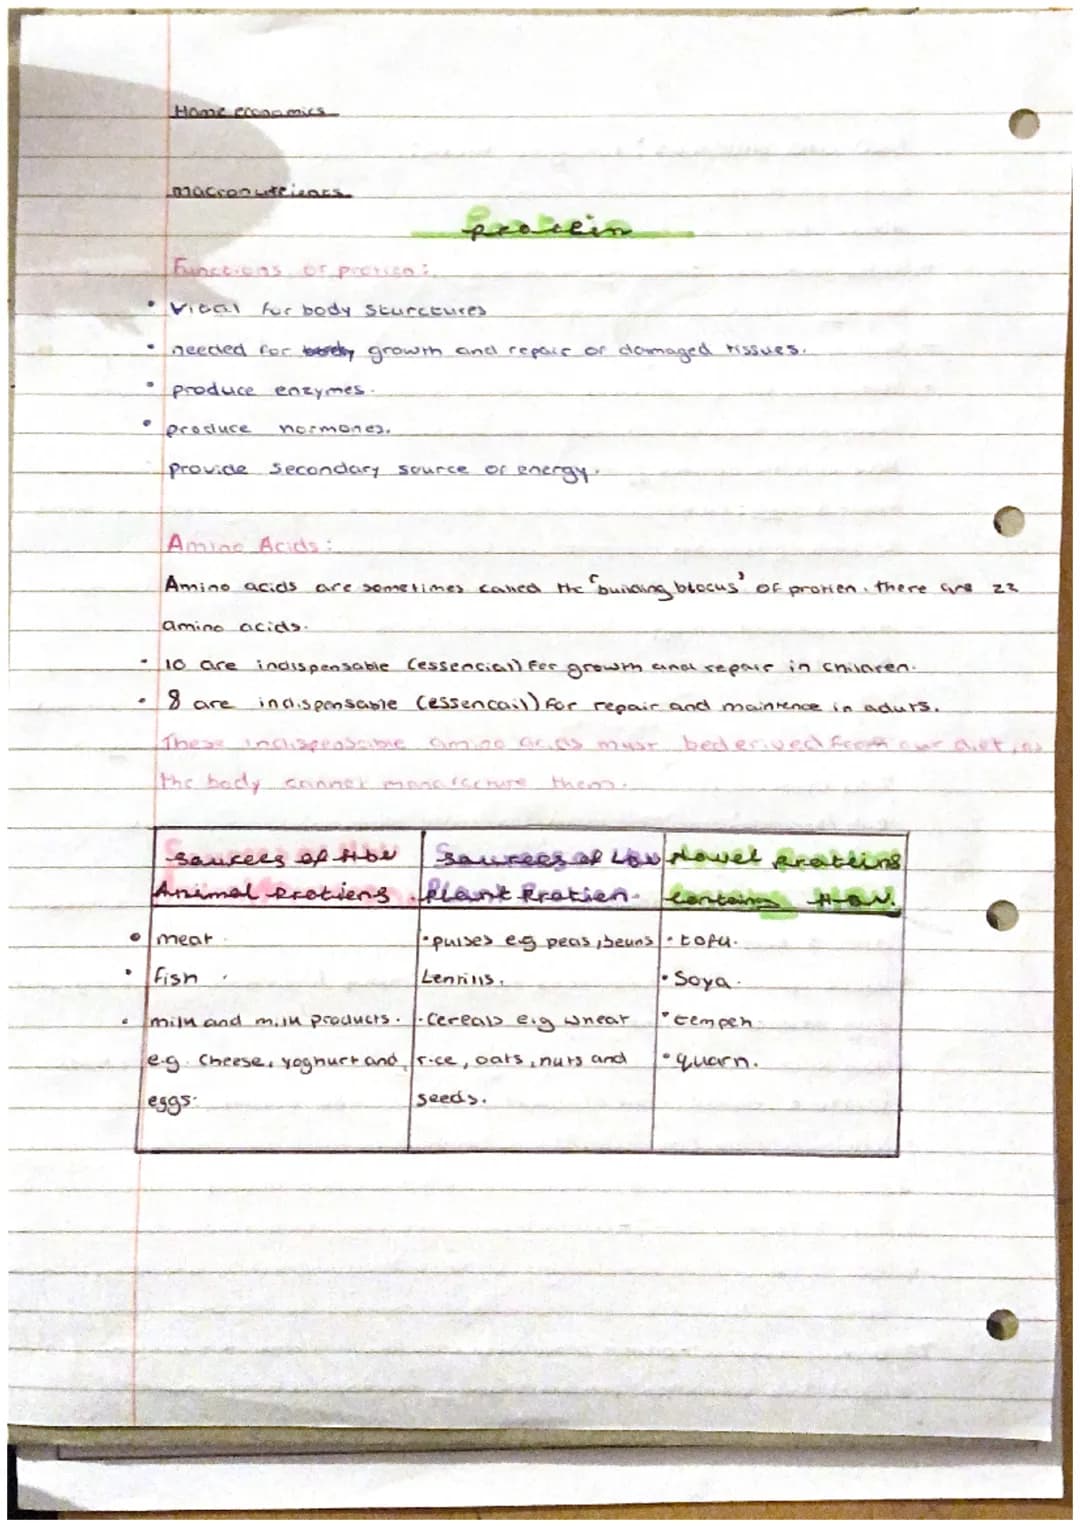 Home economics
macronutrients
protein
Functions of protien:
• Vital for body sturctures
• needed for growth and repair of damaged tissues.
• produce enzymes.
• produce hormones.
provide secondary source of energy.
Amino Acids:
Amino acids are sometimes called the 'building blocks' of protien. there are 22
amino acids.
• 10 are indispensable (essencial) for growth and repair in children.
• 8 are indispensable (essencail) for repair and maintence in aduts.
These indispensible amino acids must be derived from our diet, as
the body cannot manafacture them.
Sources of Hbv Sources of LBV Novel Proteins
Animal Protiens. Plant Protien. Containing H.B.V.
• meat. • pulses e.g peas, beans • tofu.
• fish. Lentills. • Soya.
• milk and milk products. • Cereals e.g wheat • tempeh
e.g. Cheese, yoghurt and rice, oats, nuts and • quorn.
eggs. seeds.